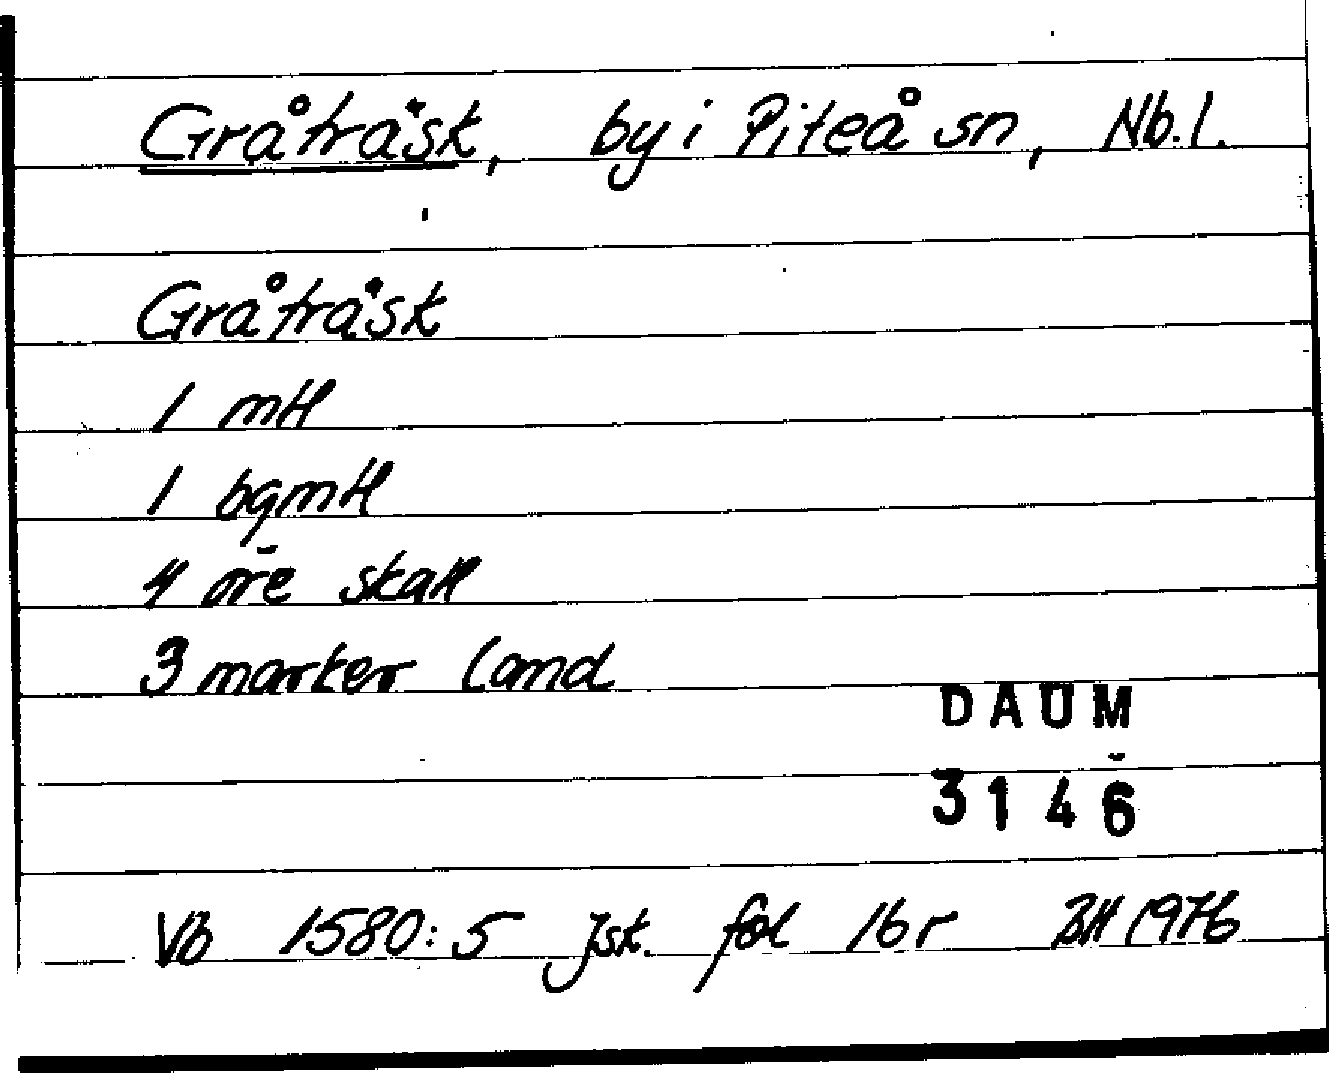 Gråträsk, by i Piteå sn, Nb.l.
Gråträsk
1 mtl
1 bgmtl
4 öre skatt
3 marker land
DAUM
3146
Vb 1580:5 Jsk. fol 16r BH 1976